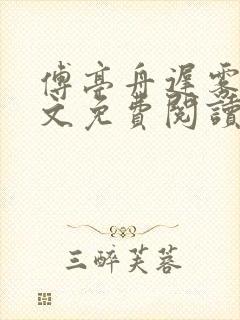 傅亭舟遲霧
文免費閱讀
三醉芙蓉